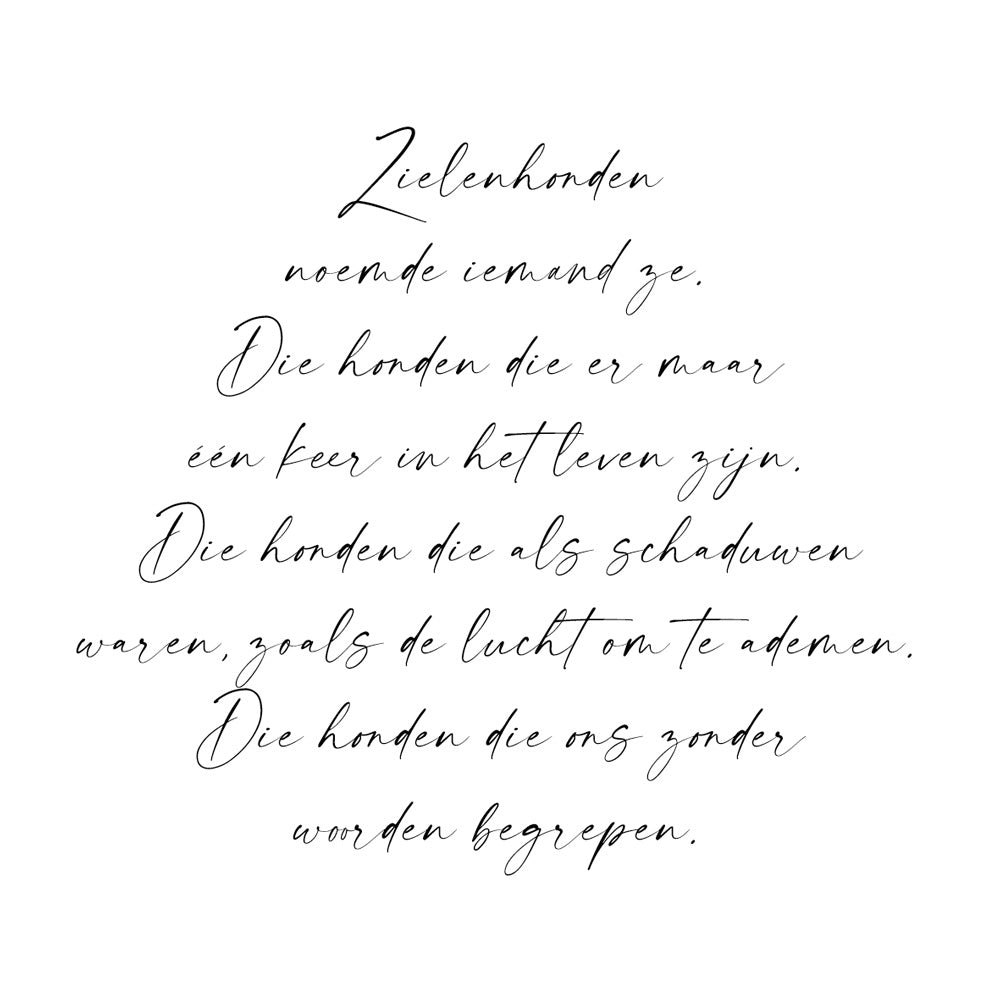 Zielenhonden
noemde iemand ze.
Die honden die er maar
één keer in het leven zijn.
Die honden die als schaduwen
waren, zoals de lucht om te ademen.
Die honden die ons zonder
woorden begrepen.